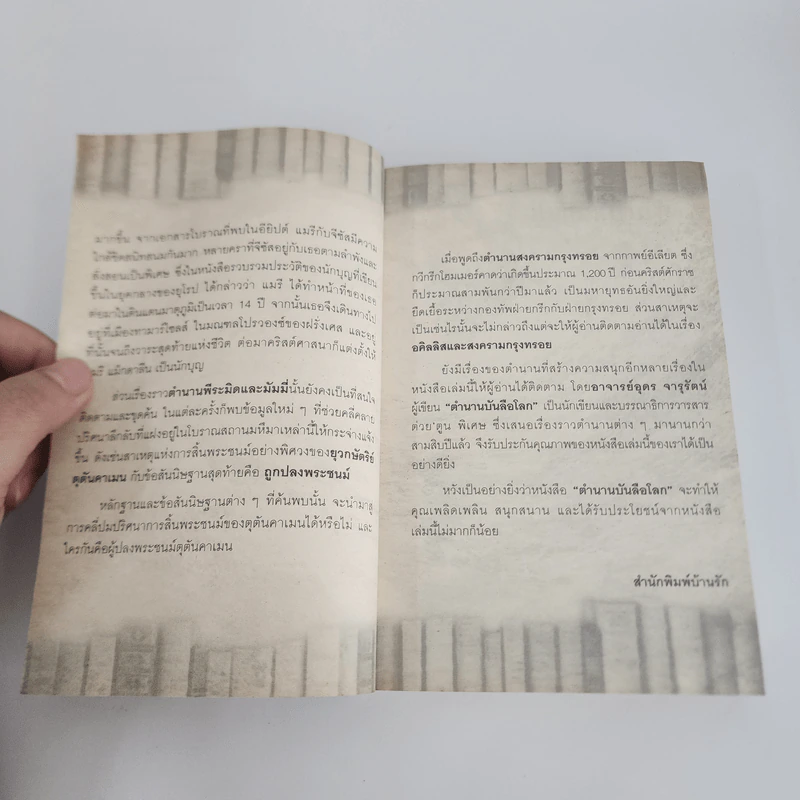 มากขึ้น จากเอกสารโบราณที่พบในอียิปต์ แมรีกับจีซัสมีความ
ใกล้ชิดสนิทสนมกันมาก หลายคราที่จีซัสอยู่กับเธอตามลำพังและ
สั่งสอนเป็นพิเศษ ซึ่งในหนังสือรวบรวมประวัติของนักบุญที่เขียน
ขึ้นในยุคกลางของยุโรป ได้กล่าวว่า แมรี ได้ทำหน้าที่ของเธอ
ต่อมาในดินแดนมาตุภูมิเป็นเวลา 14 ปี จากนั้นเธอจึงเดินทางไป
อยู่ที่เมืองทามาร์ไซลส์ ในมณฑลโปรวองซ์ของฝรั่งเศส และอยู่
ที่นั่นจนถึงวาระสุดท้ายแห่งชีวิต ต่อมาคริสต์ศาสนาก็แต่งตั้งให้
แมรี แม็กดาลีน เป็นนักบุญ
ส่วนเรื่องราวตำนานพีระมิดและมัมมี่นั้นยังคงเป็นที่สนใจ
ติดตามและขุดค้น ในแต่ละครั้งก็พบข้อมูลใหม่ ๆ ที่ช่วยคลี่คลาย
ปริศนาลึกลับที่แฝงอยู่ในโบราณสถานมหึมาเหล่านี้ให้กระจ่างแจ้ง
ขึ้น ดังเช่นสาเหตุแห่งการสิ้นพระชนม์อย่างพิศวงของยุวกษัตริย์
ตุตันคาเมน กับข้อสันนิษฐานสุดท้ายคือ ถูกปลงพระชนม์
หลักฐานและข้อสันนิษฐานต่าง ๆ ที่ค้นพบนั้น จะนำมาสู่
การคลี่ปมปริศนาการสิ้นพระชนม์ของตุตันคาเมนได้หรือไม่ และ
ใครกันคือผู้ปลงพระชนม์ตุตันคาเมน
เมื่อพูดถึงตำนานสงครามกรุงทรอย จากกาพย์อีเลียด ซึ่ง
กวีกรีกโฮมเมอร์คาดว่าเกิดขึ้นประมาณ 1,200 ปี ก่อนคริสต์ศักราช
ก็ประมาณสามพันกว่าปีมาแล้ว เป็นมหายุทธอันยิ่งใหญ่และ
ยืดเยื้อระหว่างกองทัพฝ่ายกรีกกับฝ่ายกรุงทรอย ส่วนสาเหตุจะ
เป็นเช่นไรนั้นจะไม่กล่าวถึงแต่จะให้ผู้อ่านติดตามอ่านได้ในเรื่อง
อคิลลิสและสงครามกรุงทรอย
ยังมีเรื่องของตำนานที่สร้างความสนุกอีกหลายเรื่องใน
หนังสือเล่มนี้ให้ผู้อ่านได้ติดตาม โดยอาจารย์อุดร จารุรัตน์
ผู้เขียน “ตำนานบันลือโลก” เป็นนักเขียนและบรรณาธิการวารสาร
ต่วย'ตูน พิเศษ ซึ่งเสนอเรื่องราวตำนานต่าง ๆ มานานกว่า
สามสิบปีแล้ว จึงรับประกันคุณภาพของหนังสือเล่มนี้ของเราได้เป็น
อย่างดียิ่ง
หวังเป็นอย่างยิ่งว่าหนังสือ “ตำนานบันลือโลก” จะทำให้
คุณเพลิดเพลิน สนุกสนาน และได้รับประโยชน์จากหนังสือ
เล่มนี้ไม่มากก็น้อย
สำนักพิมพ์บ้านรัก